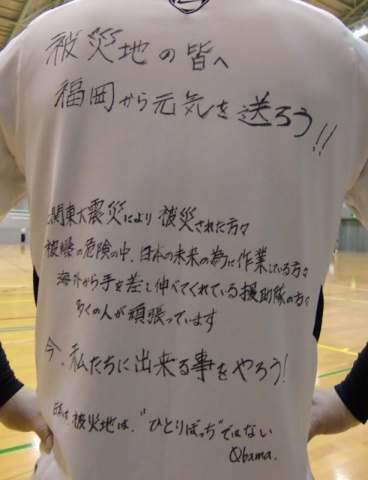 被災地の皆へ
福岡から元気を送ろう!!
関東大震災により被災された方々
被曝の危険の中、日本の未来の為に作業している方々
海外から手を差し伸べてくれている援助隊の方々
多くの人が頑張っています
今、私たちに出来る事をやろう!
日本は、被災地は、"ひとりぼっち"ではない
Obama.